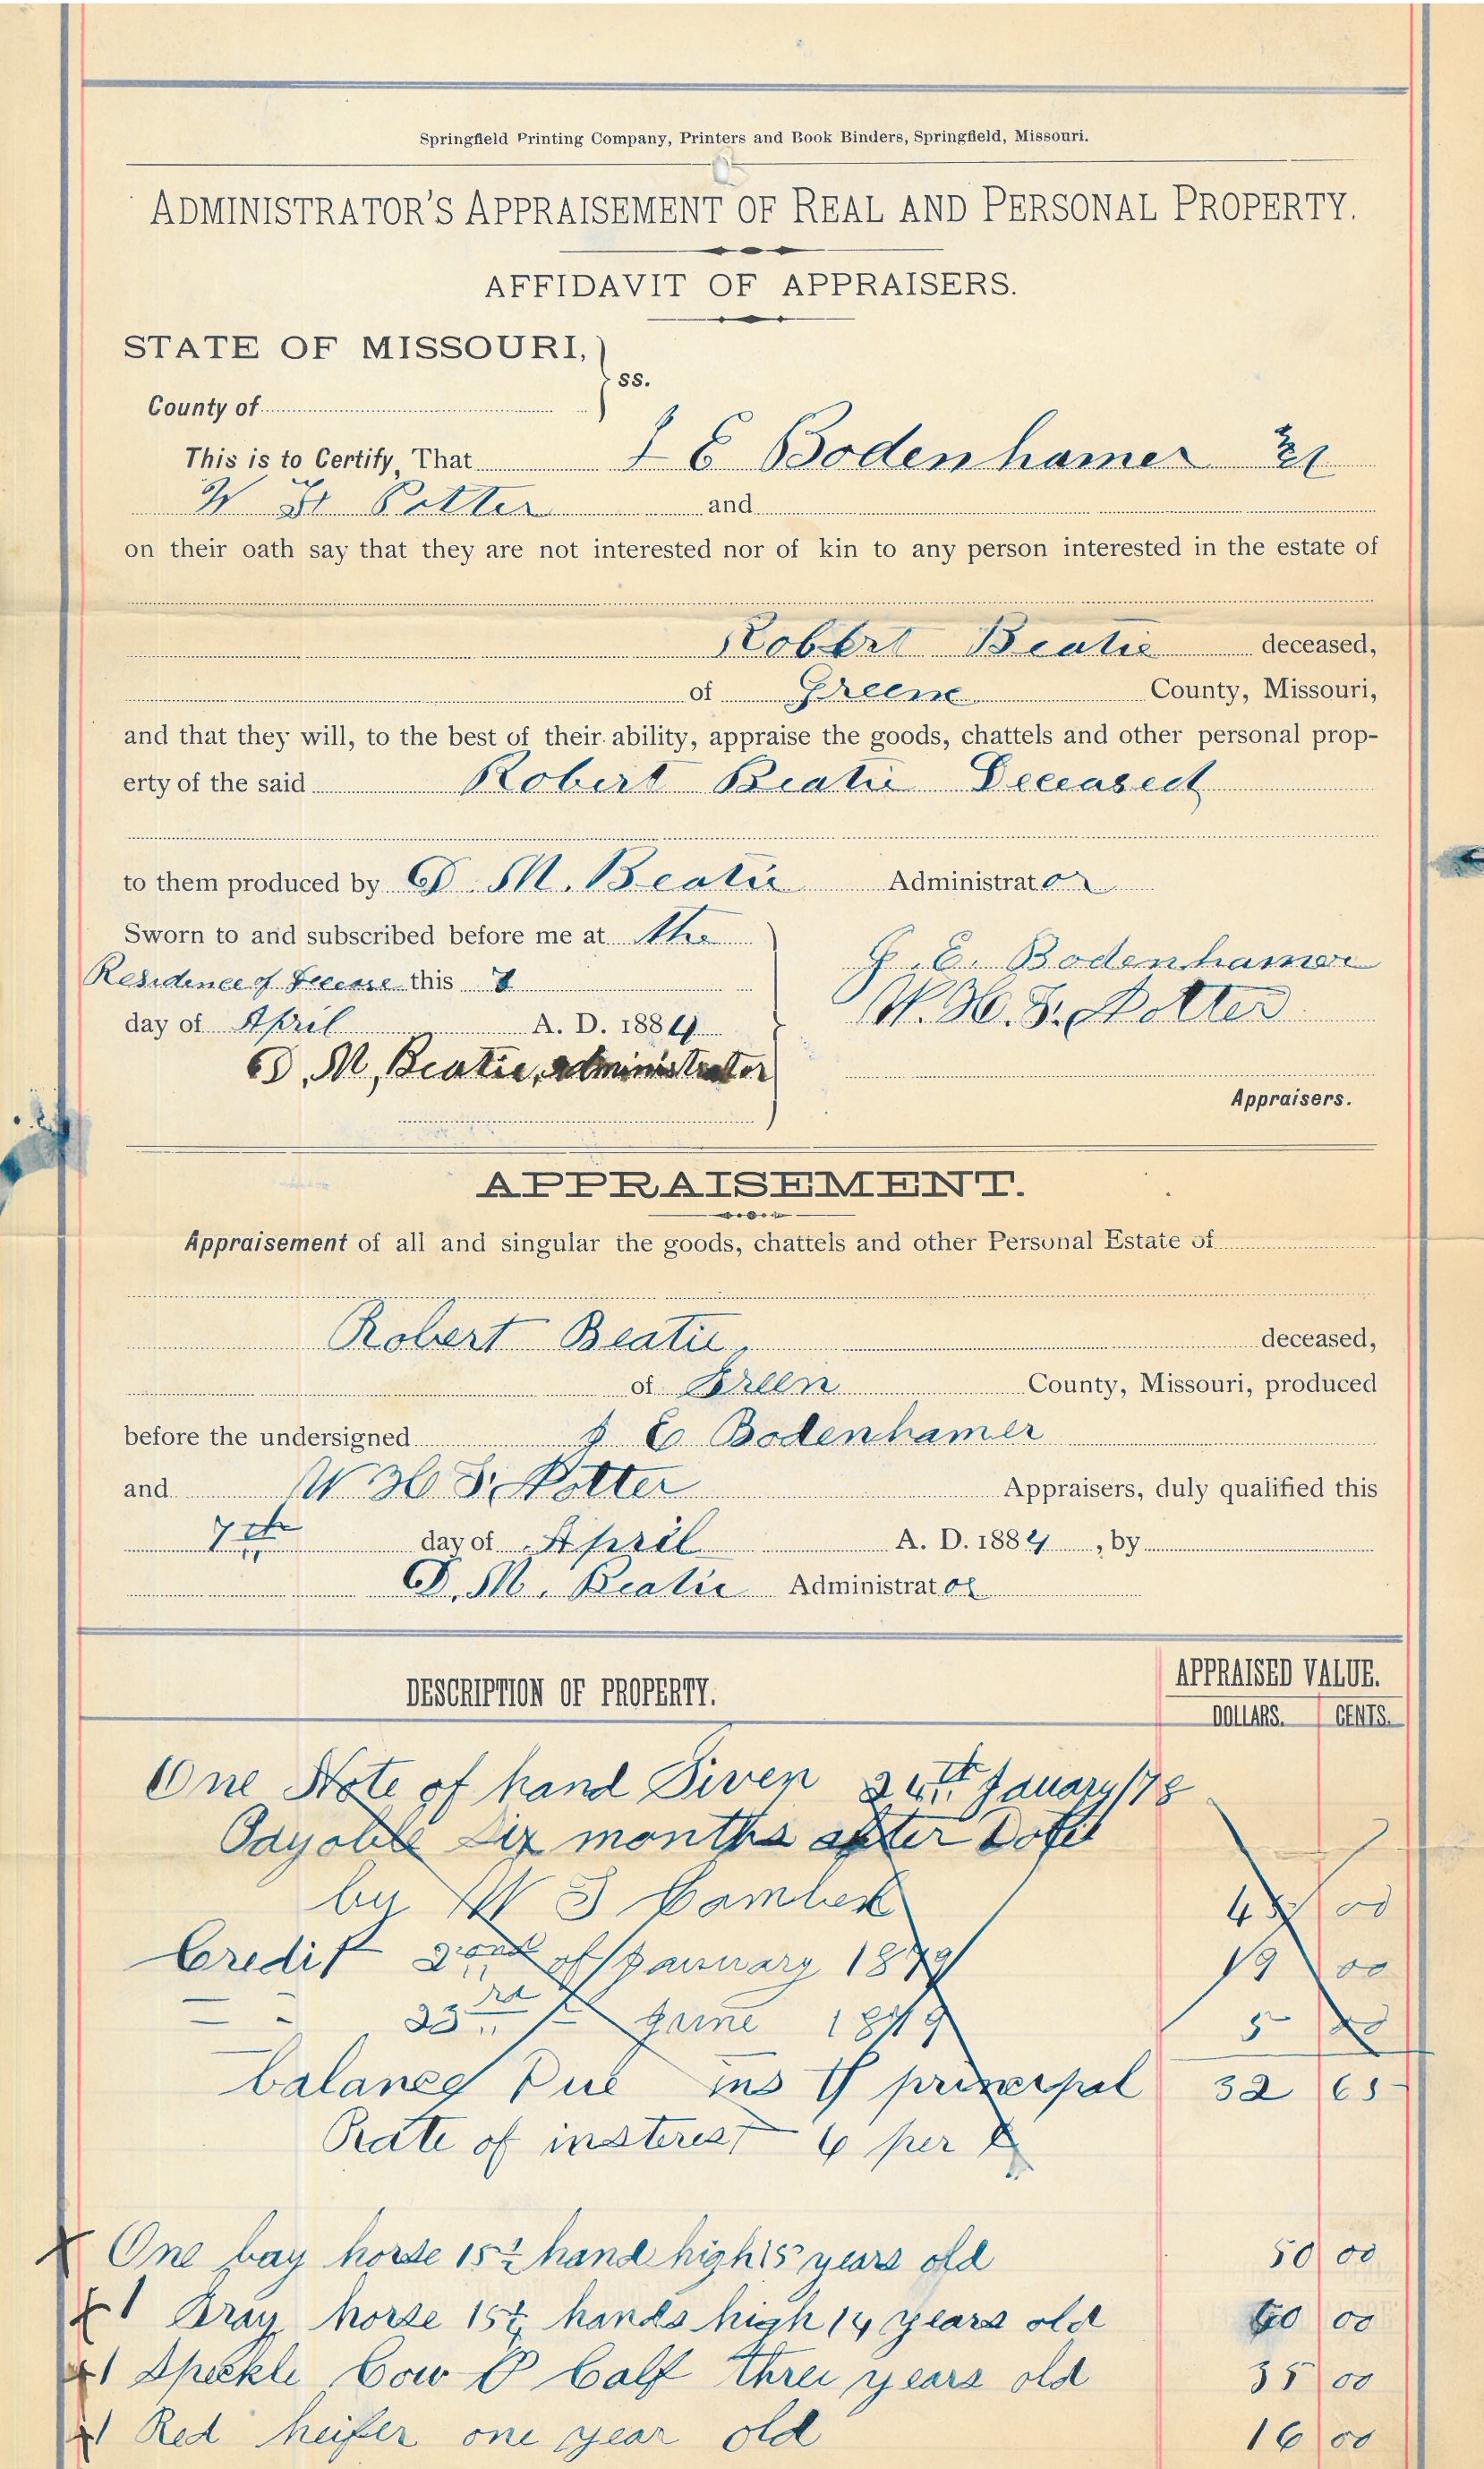 Springfield Printing Company, Printers and Book Binders, Springfield, Missouri.
ADMINISTRATOR'S APPRAISEMENT OF REAL AND PERSONAL PROPERTY.
AFFIDAVIT OF APPRAISERS.
STATE OF MISSOURI,
ss.
County of
This is to Certify, That J E Bodenhamer &
W H Potter and
on their oath say that they are not interested nor of kin to any person interested in the estate of
Robert Beatie deceased,
of Greene County, Missouri,
and that they will, to the best of their ability, appraise the goods, chattels and other personal prop-
erty of the said Robert Beatie Deceased
to them produced by D. M. Beatie Administrator
Sworn to and subscribed before me at the
Residence of Decease this 7
day of April A. D. 1884
D. M, Beatie, administrator
J. E. Bodenhamer
W. H. F. Potter
Appraisers.
APPRAISEMENT.
Appraisement of all and singular the goods, chattels and other Personal Estate of
Robert Beatie, deceased,
of Green County, Missouri, produced
before the undersigned J E Bodenhamer
and W H F. Potter Appraisers, duly qualified this
7th day of April A. D. 1884, by
D. M. Beatie Administrator
DESCRIPTION OF PROPERTY. APPRAISED VALUE.
DOLLARS. CENTS.
One Note of hand Given 24th January/78
Payable Six months after Date
by W S 00
Credit 2ond of January 1879 19 00
= = 23rd = June 1879 5 00
balance Due ins & principal 32 65
Rate of insterest 6 per
One bay horse 15½ hand high 15 years old 50 00
1 Gray horse 15½ hands high 14 years old 60 00
1 Speckle Cow & Calf three years old 35 00
1 Red heifer one year old 16 00